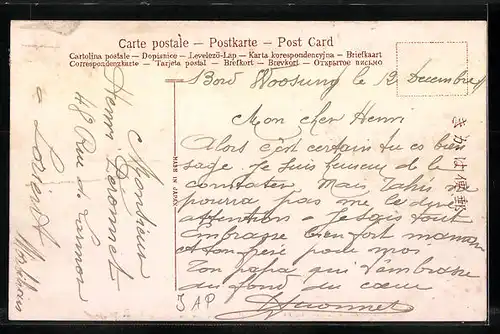 Carte postale — Postkarte — Post Card
Cartolina postale — Dopisnice — Levelező-Lap — Karta korespondencyjna — Briefkaart
Correspondenzkarte — Tarjeta postal — Brefkort — Brevkort — Открытое письмо
Bord Woosung le 12 Decembre
Mon cher Henri
Alors c'est certain tu es bien
sage. Je suis heureux de le
constater. Mais
pourra pas me le dire
attention. Je sais tout
Embrasse bien fort maman
et ton frère pour moi
Ton papa qui t'embrasse
du fond du cœur
Deronnet
Monsieur
Henri Deronnet
48 Rue de Larmor
a Lorient
Morbihan
MADE IN JAPAN
きかは便郵
JAP